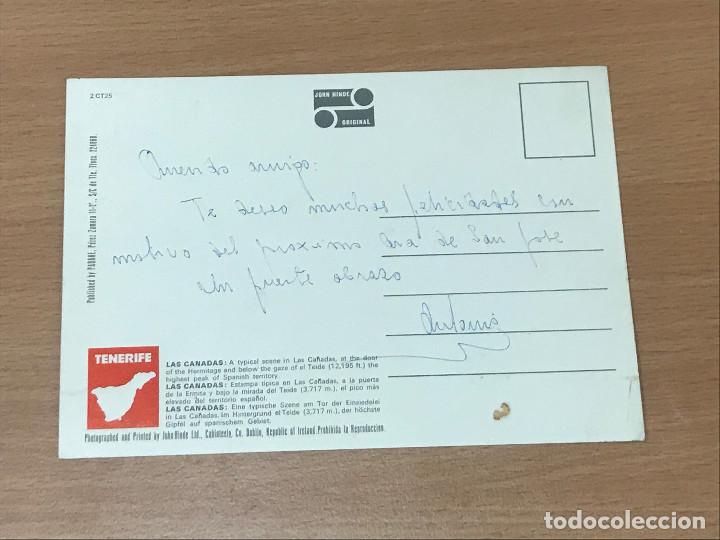 2 CT25
JOHN HINDE
ORIGINAL
Querido amigo:
Te deseo muchas felicidades con
motivo del proximo dia de San Jose
Un fuerte abrazo
Antonio
TENERIFE
LAS CANADAS: A typical scene in Las Cañadas, at the door
of the Hermitage and below the gaze of el Teide (12,195 ft.) the
highest peak of Spanish territory
LAS CANADAS: Estampa típica en Las Cañadas, a la puerta
de la Ermita y bajo la mirada del Teide (3,717 m.), el pico más
elevado del territorio español.
LAS CAÑADAS: Eine typische Szene am Tor der Einsiedelei
in Las Cañadas. Im Hintergrund el Teide (3,717 m.), der höchste
Gipfel auf spanischem Gebiet.
Photographed and Printed by John Hinde Ltd., Cabinteely, Co. Dublin, Republic of Ireland. Prohibida la Reproduccion.
Published by PADRON, Pérez Zamora, S/C de Tfe. Tfnos.
todocoleccion